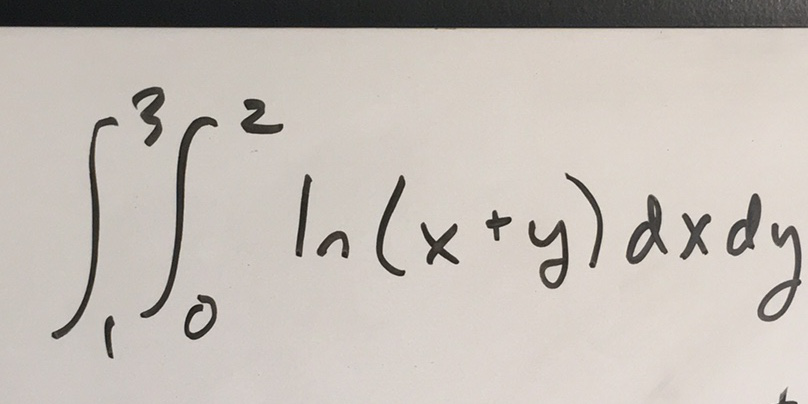 ∫₁³∫₀² ln(x+y) dx dy